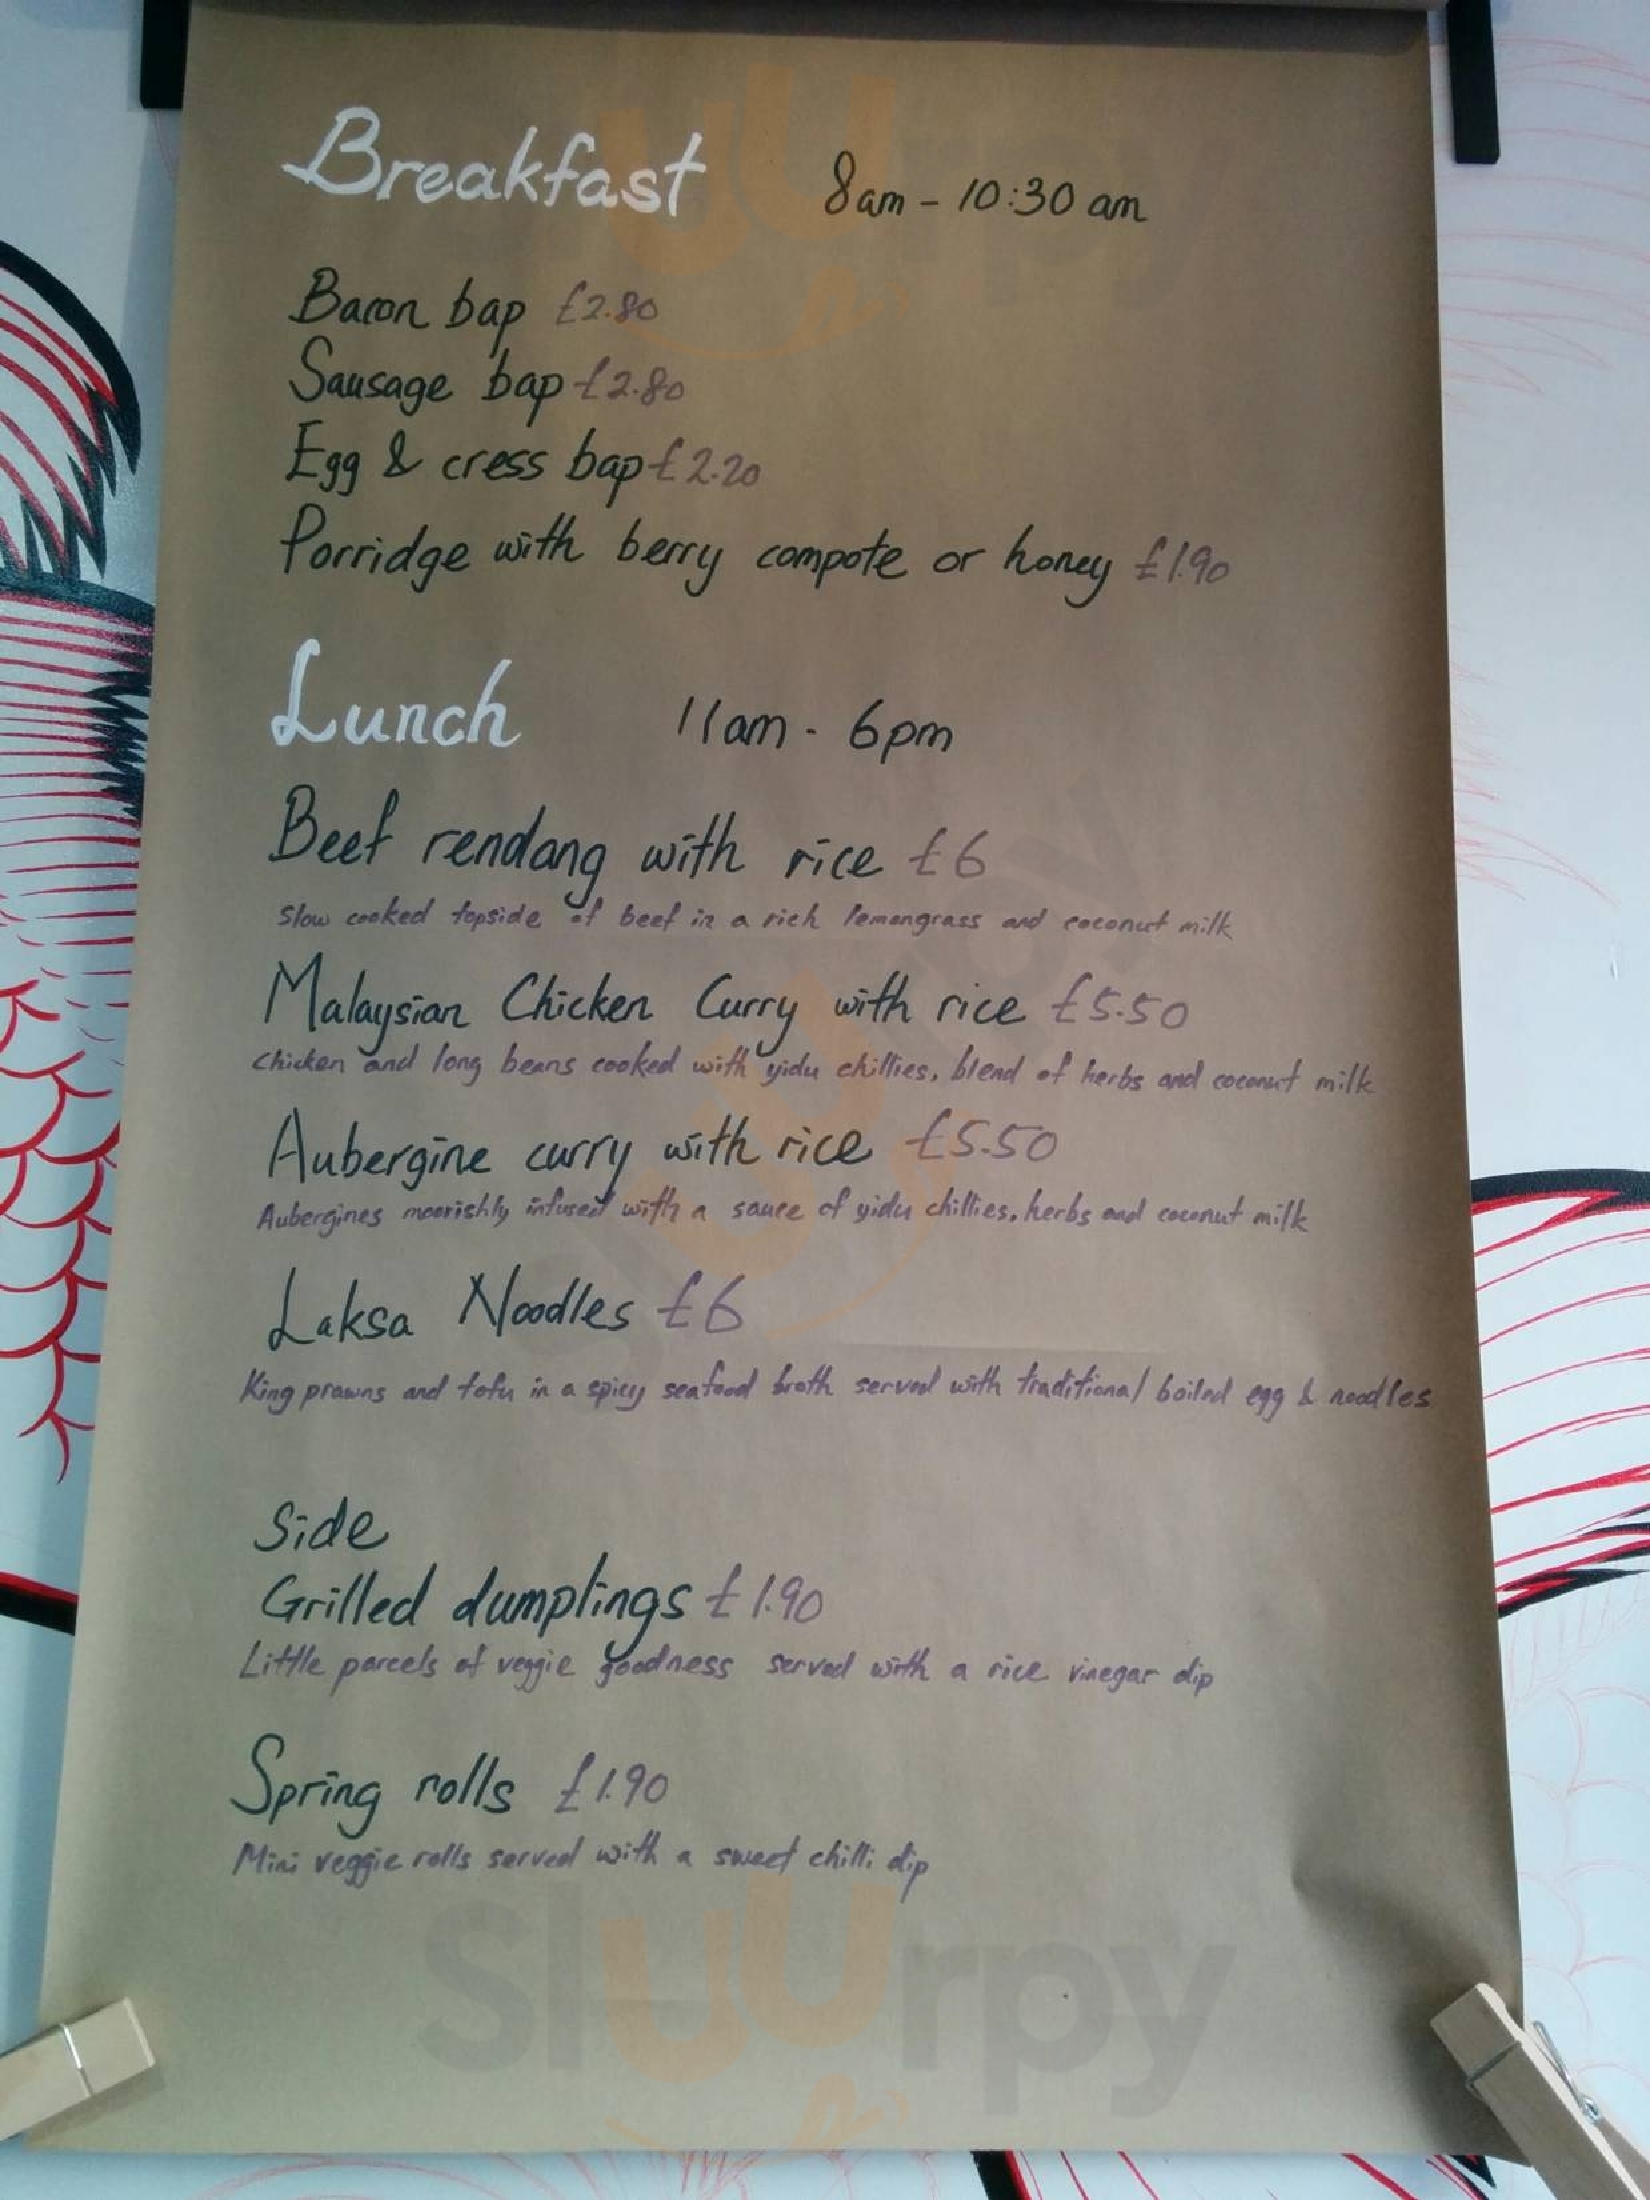 Breakfast 8am - 10:30 am
Bacon bap £2.80
Sausage bap £2.80
Egg & cress bap £2.20
Porridge with berry compote or honey £1.90
Lunch 11am - 6pm
Beef rendang with rice £6
Slow cooked topside of beef in a rich lemongrass and coconut milk
Malaysian Chicken Curry with rice £5.50
Chicken and long beans cooked with yidu chillies, blend of herbs and coconut milk
Aubergine curry with rice £5.50
Aubergines moorishly infused with a sauce of yidu chillies, herbs and coconut milk
Laksa Noodles £6
King prawns and tofu in a spicy seafood broth served with traditional boiled egg & noodles
Side
Grilled dumplings £1.90
Little parcels of veggie goodness served with a rice vinegar dip
Spring rolls £1.90
Mini veggie rolls served with a sweet chilli dip
Sluurpy
Sluurpy
Sluurpy